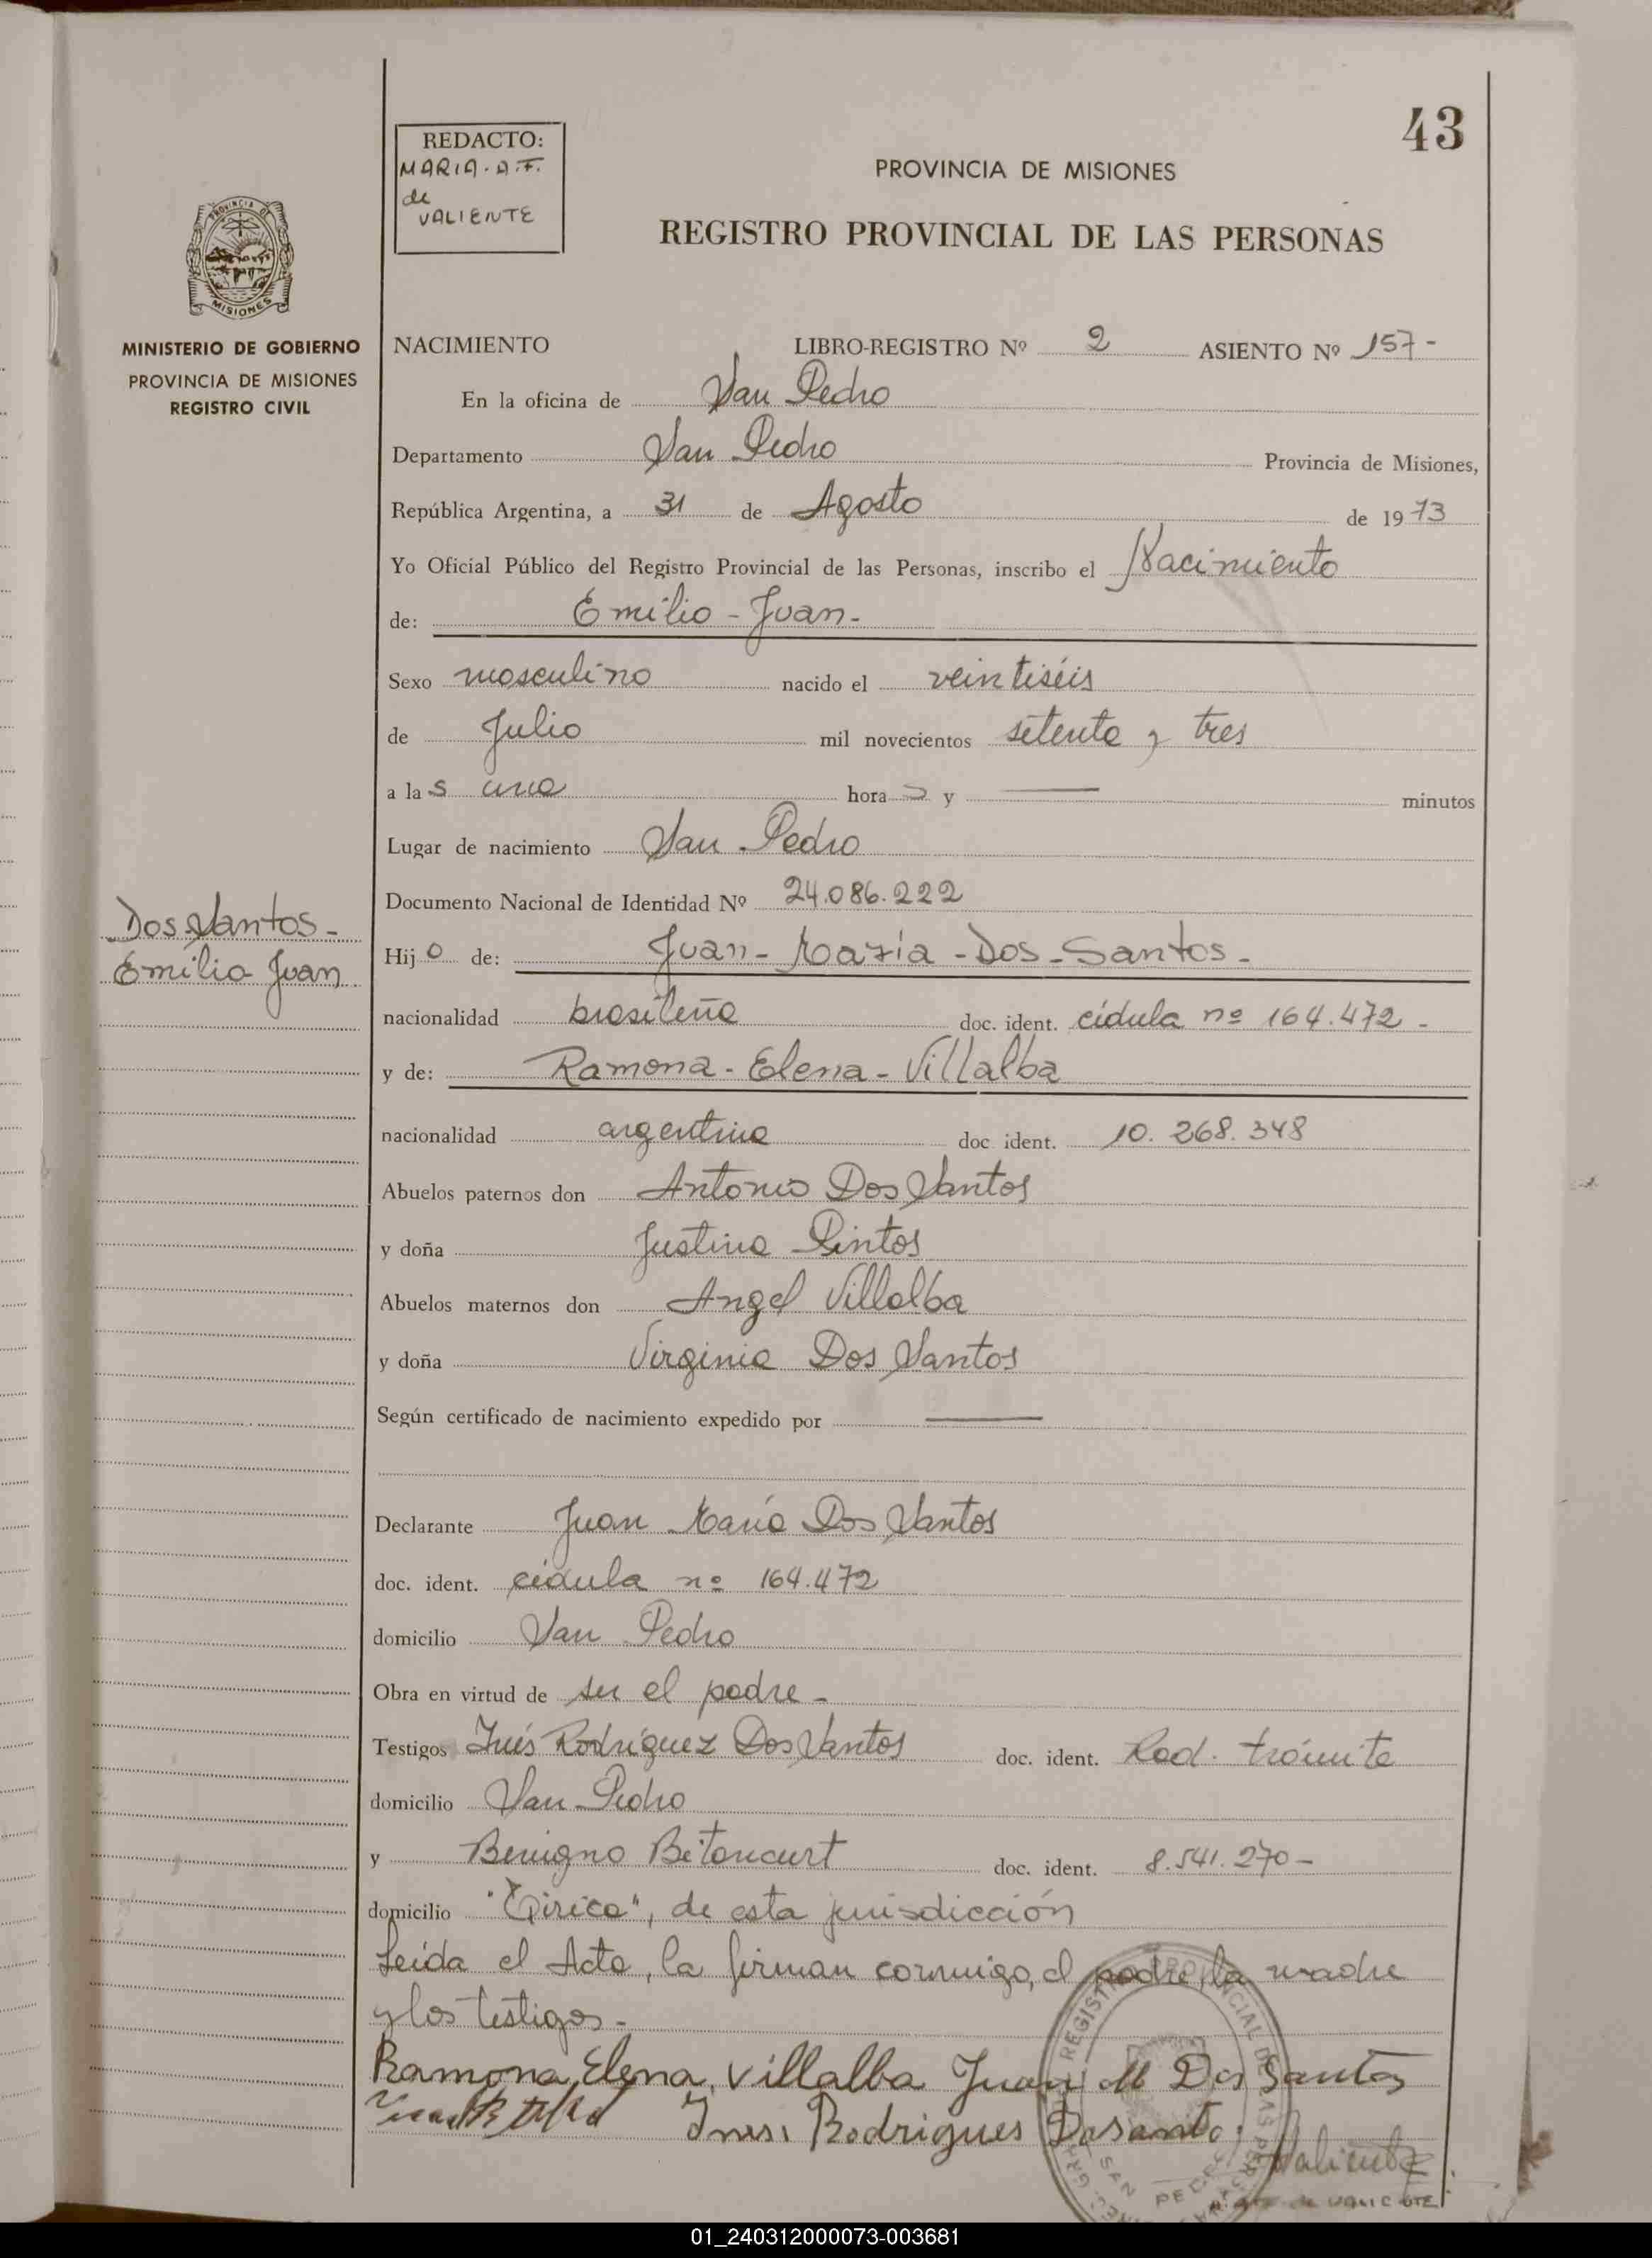 43
REDACTO:
MARIA. A.F.
de
VALIENTE
PROVINCIA DE MISIONES
REGISTRO PROVINCIAL DE LAS PERSONAS
PROVINCIA DE
MISIONES
MINISTERIO DE GOBIERNO
PROVINCIA DE MISIONES
REGISTRO CIVIL
NACIMIENTO LIBRO-REGISTRO Nº 2 ASIENTO Nº 157-
En la oficina de San Pedro
Departamento San Pedro Provincia de Misiones,
República Argentina, a 31 de Agosto de 1973
Yo Oficial Público del Registro Provincial de las Personas, inscribo el Nacimiento
de: Emilio - Juan-
Sexo masculino nacido el veintiséis
de Julio mil novecientos setenta y tres
a las una horas y — minutos
Lugar de nacimiento San Pedro
Documento Nacional de Identidad Nº 24.086.222
Dos Santos-
Emilio Juan
Hijo de: Juan- María -Dos-Santos-
nacionalidad brasileña doc. ident. cédula nº 164.472-
y de: Ramona- Elena- Villalba
nacionalidad argentina doc ident. 10.268.348
Abuelos paternos don Antonio Dos Santos
y doña Justina Pintos
Abuelos maternos don Angel Villalba
y doña Virginia Dos Santos
Según certificado de nacimiento expedido por —
Declarante Juan María Dos Santos
doc. ident. cédula nº 164.472
domicilio San Pedro
Obra en virtud de ser el padre-
Testigos Inés Rodríguez Dos Santos doc. ident. Rad. trámite
domicilio San Pedro
y Benigno Betancurt doc. ident. 8.541.270-
domicilio de esta jurisdicción
Leída el Acta, la firman conmigo, el padre, la madre
y los testigos-
Ramona, Elena, Villalba Juan M Dos Santos
Ines. Rodrigues Dosanto
Valiente
de VALIENTE
REGISTRO PROVINCIAL DE LAS PERSONAS
SAN PEDRO
01_240312000073-003681